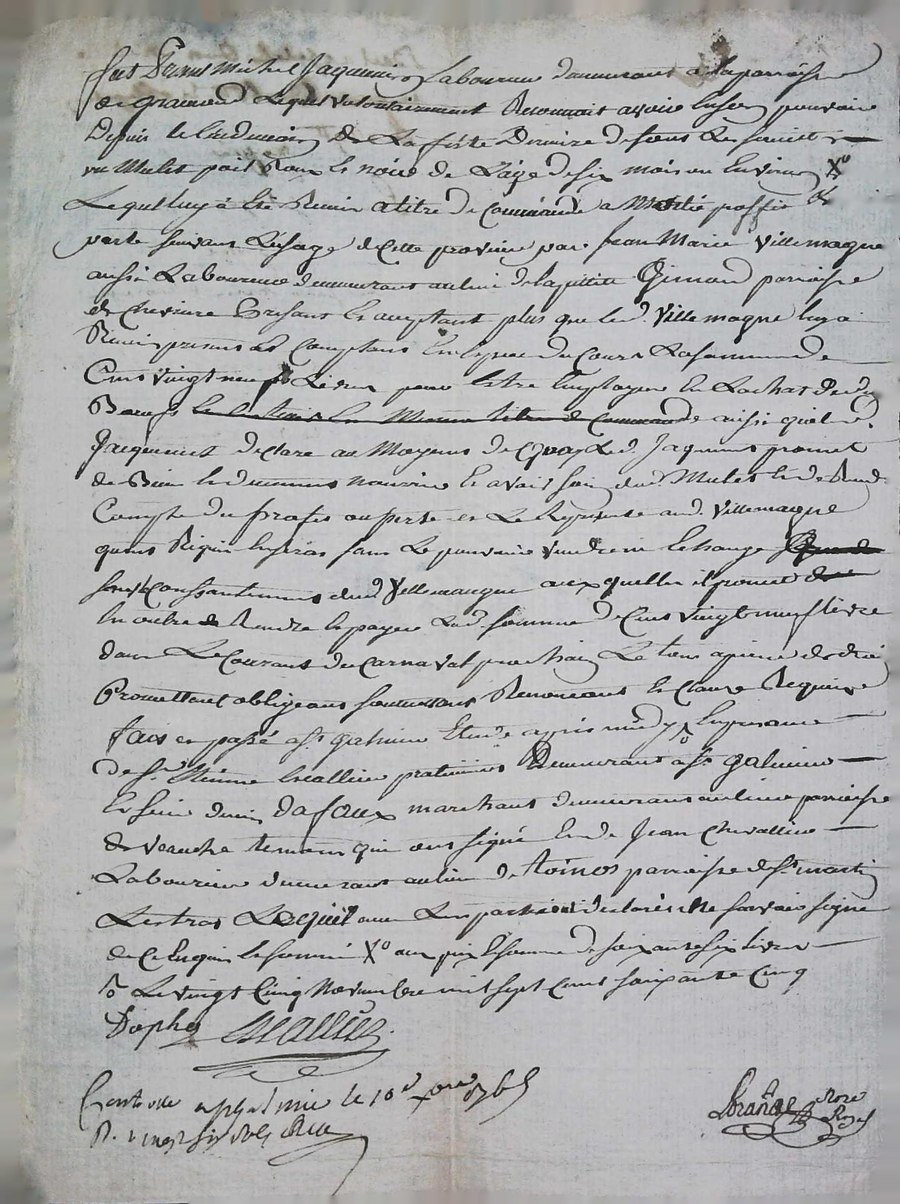 fut Present Michel Jaquemin Laboureur demeurant à la parroisse
de gramond Lequel volontairement Reconnoit avoir en son pouvoir
Depuis le lendemain De La fette Derniere de tous Les saints
un Mulet poil Roux et noir de L'âge de six mois ou Environ Xo
Lequel luy à été Remis a titre de Commande a Moitié proffit et
perte suivant L'usage de Cette province par Jean Marie Villemagne
aussi Laboureur demeurant au lieu de la petitte Gimond parroisse
de Chevriere Presant et acceptant plus que led Villemagne luy a
Remis presentement Comptant En Especes du Cours La somme de
Cent vingt neuf Livres pour être Employée En Lachat De
Boeufs de Commande ainsi que led
Jacquemint declare au Moyens de quoy Led Jaquemin promet
de Bien et duement nourrir et avoir soin dud Mulet et de Rendre
Compte du profit ou perte et Le Represente aud Villemagne
quand Requis En sera sans Le pouvoir vendre ni Echange
sans le Consentement dud Villemagne auxquelles il promet
En outre de Rendre et payer Lad somme de Cent vingt neuf livre
dans Le Courant du Carnaval prochain Le tout a peine de droit
Promettant obligeant soumettant Renonceant Et Clause Requise
fait et passé a St galmier Etude apres midy En presance
de Sr Etienne Escallier praticien Demeurant a St galmier
Et Sieur denis Dafaux marchant demeurant au lieu parroisse
de veauche temoins qui ont signé Et de Jean Chevallier
Laboureur demeurant au lieu de Noinos parroisse de St martin
Lestras Lequel avec Les parties ont declarés Ne savoir signe
de Ce Enquis Et Sommé Xo au prix Et somme de soixante six livres
Le vingt Cinq Novembre mil sept Cent soixante Cinq
Escallier
Controllé a st galmie le 10e xbre 1765
R. vingt six sols